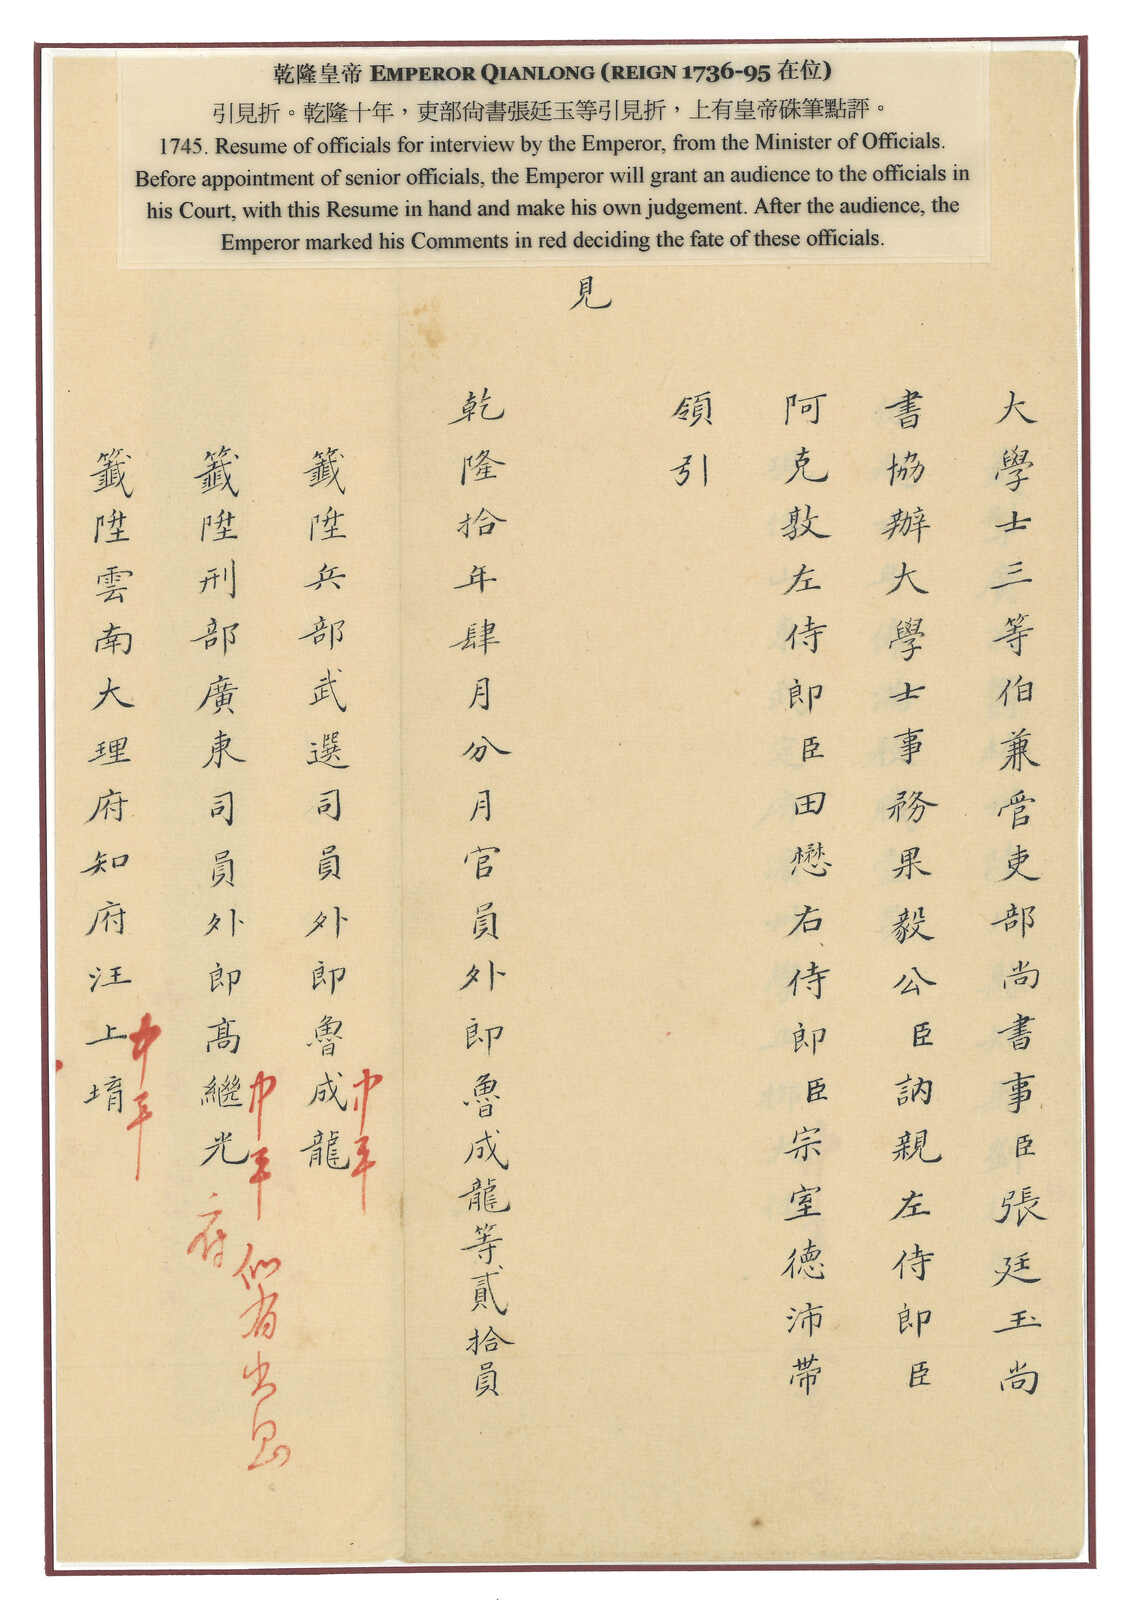 乾隆皇帝 EMPEROR QIANLONG (REIGN 1736-95 在位)
引見折。乾隆十年，吏部尚書張廷玉等引見折，上有皇帝硃筆點評。
1745. Resume of officials for interview by the Emperor, from the Minister of Officials.
Before appointment of senior officials, the Emperor will grant an audience to the officials in
his Court, with this Resume in hand and make his own judgement. After the audience, the
Emperor marked his Comments in red deciding the fate of these officials.
大學士三等伯兼管吏部尚書事臣張廷玉尚
書協辦大學士事務果毅公臣訥親左侍郎臣
阿克敦左侍郎臣田懋右侍郎臣宗室德沛帶
領引
見
乾隆拾年肆月分月官員外郎魯成龍等貳拾員
籤陞兵部武選司員外郎魯成龍
中平
籤陞刑部廣東司員外郎高繼光
中平
似有出息
府
籤陞雲南大理府知府汪上堉
中平